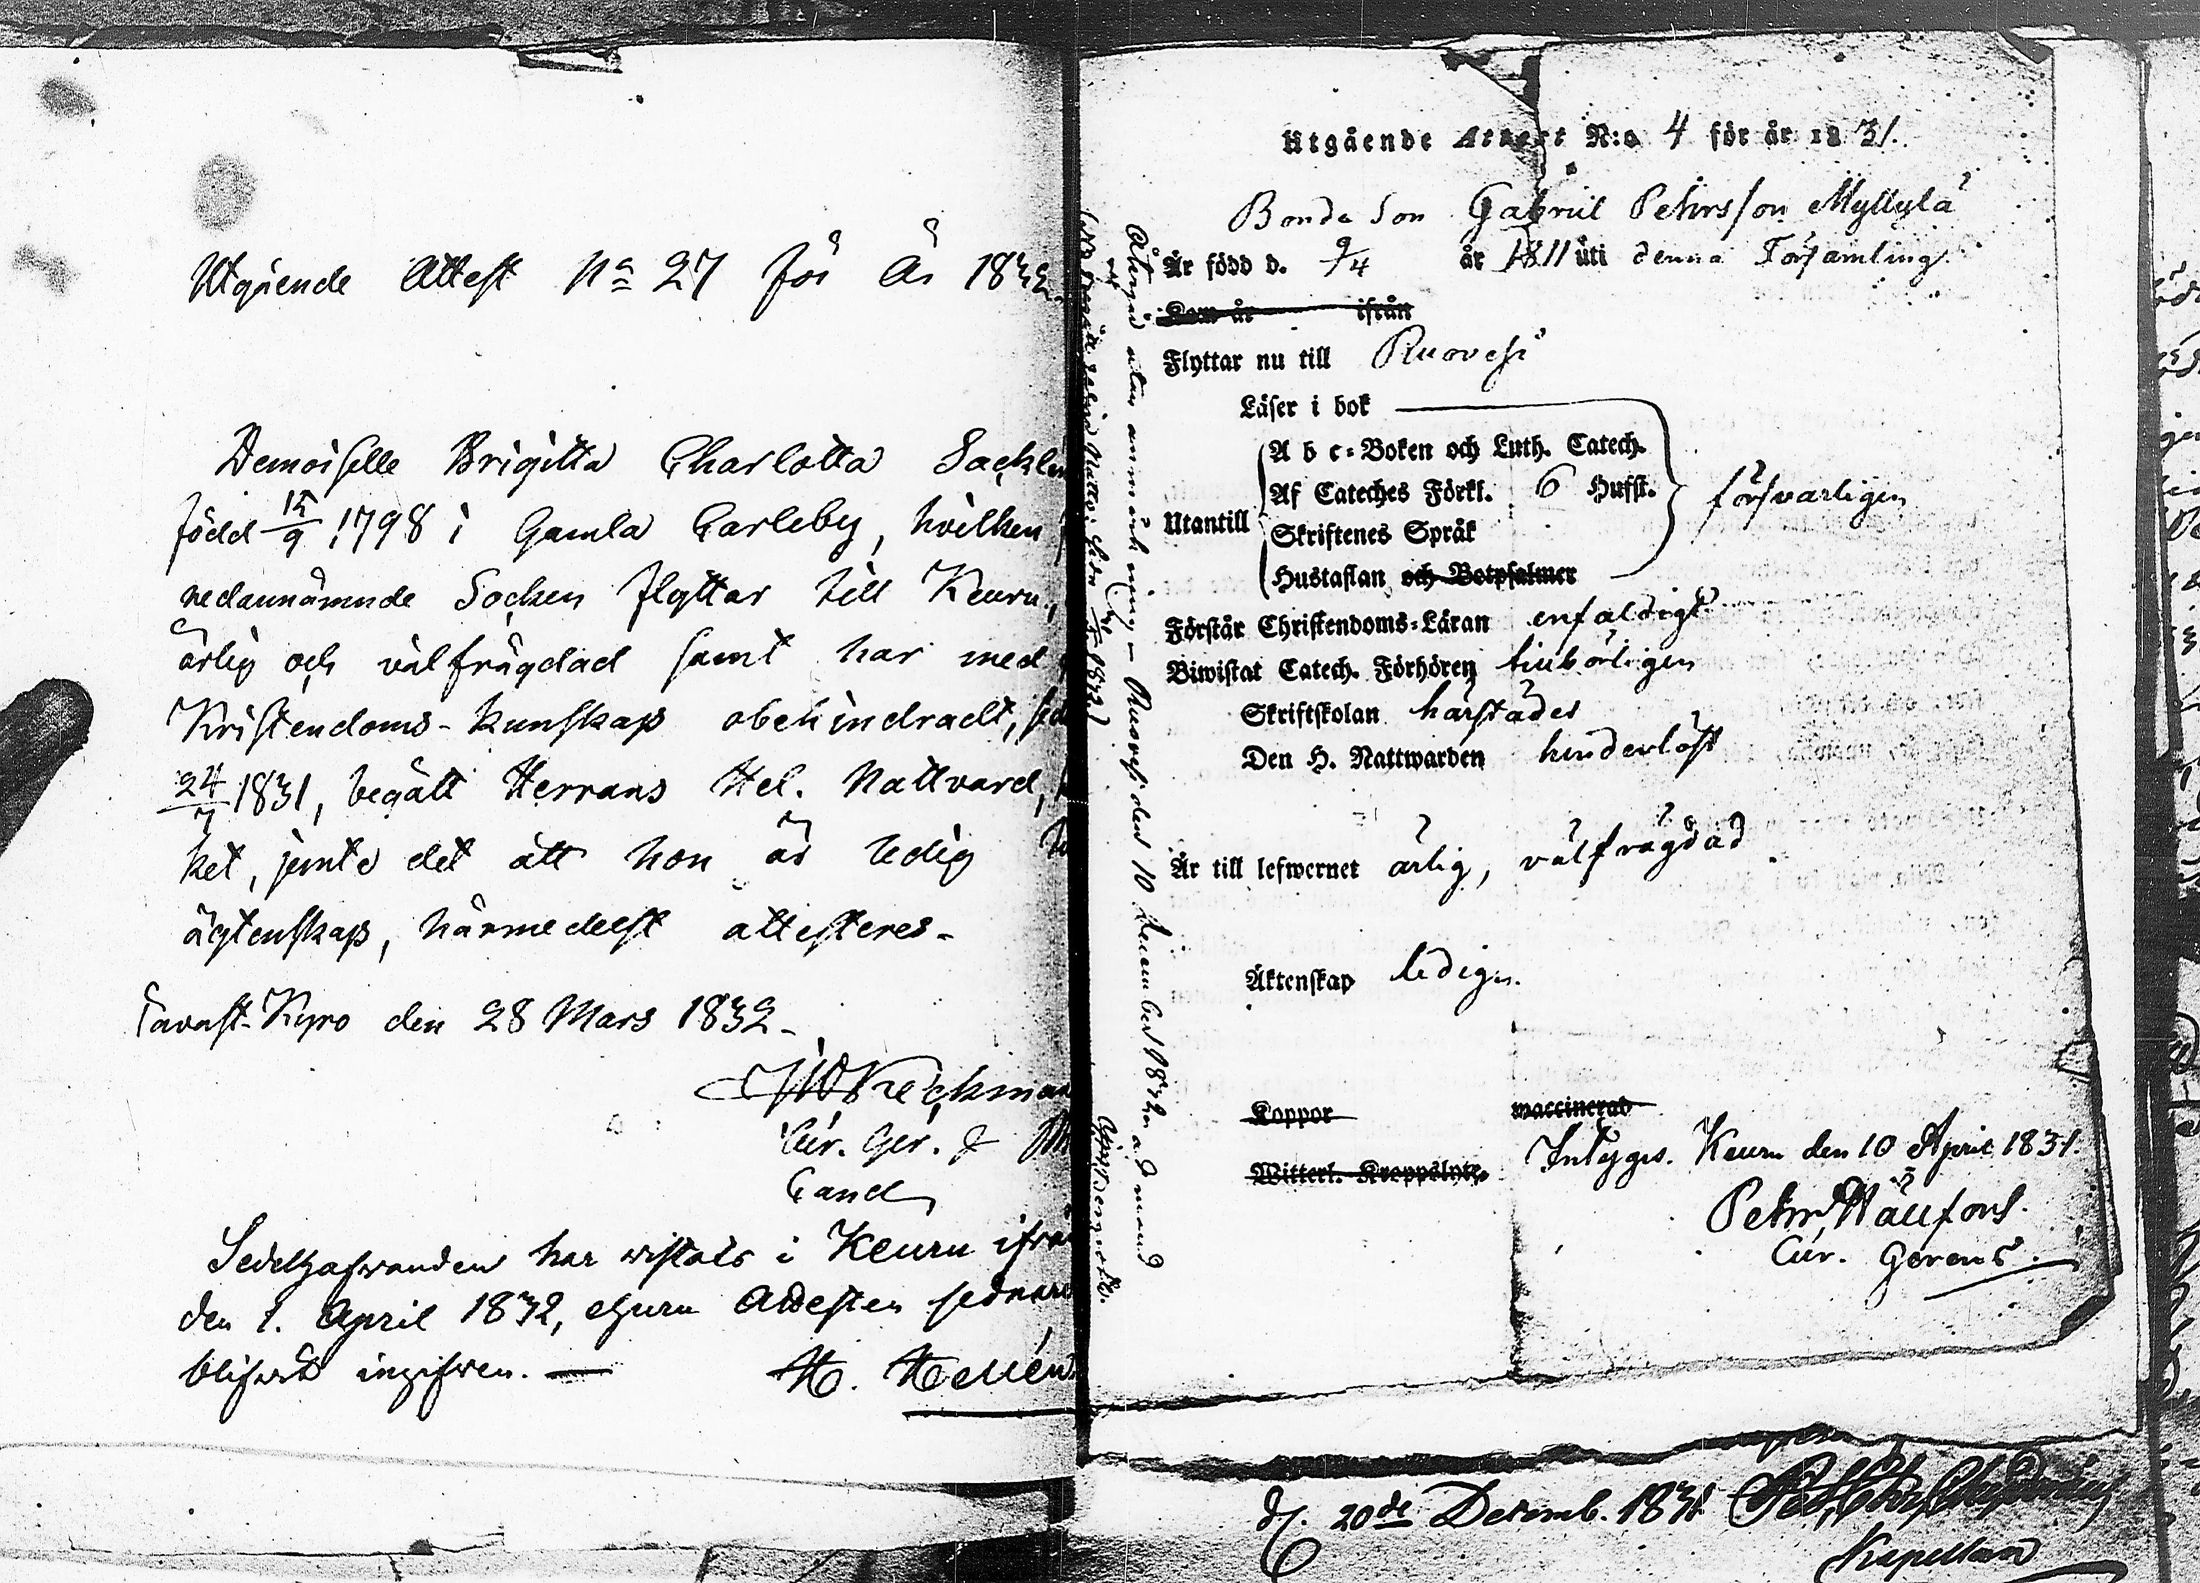 Utgående Attest No 27 för År 1832.
Demoiselle Brigitta Charlotta
född 15/9 1798 i Gamla Carleby, hvilken
nedannämnde Socken flyttar till Keuru,
ärlig och välfrägdad samt har med
Kristendoms-kunskap obehindradt,
24/7 1831, begått Herrans Hel. Nattvard,
ket, jemte det att hon är ledig
ägtenskap, härmedelst attesteres-
Tavast-Kyro den 28 Mars 1832-
Cur. Ger. &
Cand
Sedelhafvanden har vistats i Keuru ifrån
den 1. April 1832, ehuru Attesten sednare
blifvit ingifven. —
H. Hellén
Utgående Attest N:o 4 för år 1831.
Bonde Son Gabriel Pehrsson Myllylä
Är född d. 9/4 år 1811 uti denna Församling
Kom år ifrån
Flyttar nu till Ruovesi
Läser i bok
A b c-Boken och Luth. Catech.
Af Cateches Förkl. 6 Hufst. försvarligen
Utantill
Skriftenes Språk
Hustaflan och Botpsalmer
Förstår Christendoms-Läran enfaldigt
Biwistat Catech. Förhören tillbörligen
Skriftskolan härstädes
Den H. Nattwarden hinderlöst
Är till lefwernet ärlig, välfrägdad.
Äktenskap ledig.
Koppor vaccinerad
Witterl. Kroppslyte
Intygas. Keuru den 10 April 1831.
Cur. Gerens.
Återgår utan anmärkning. Ruovesi den 10 December 1832.
d. 20de Decemb. 1831
Kapellan